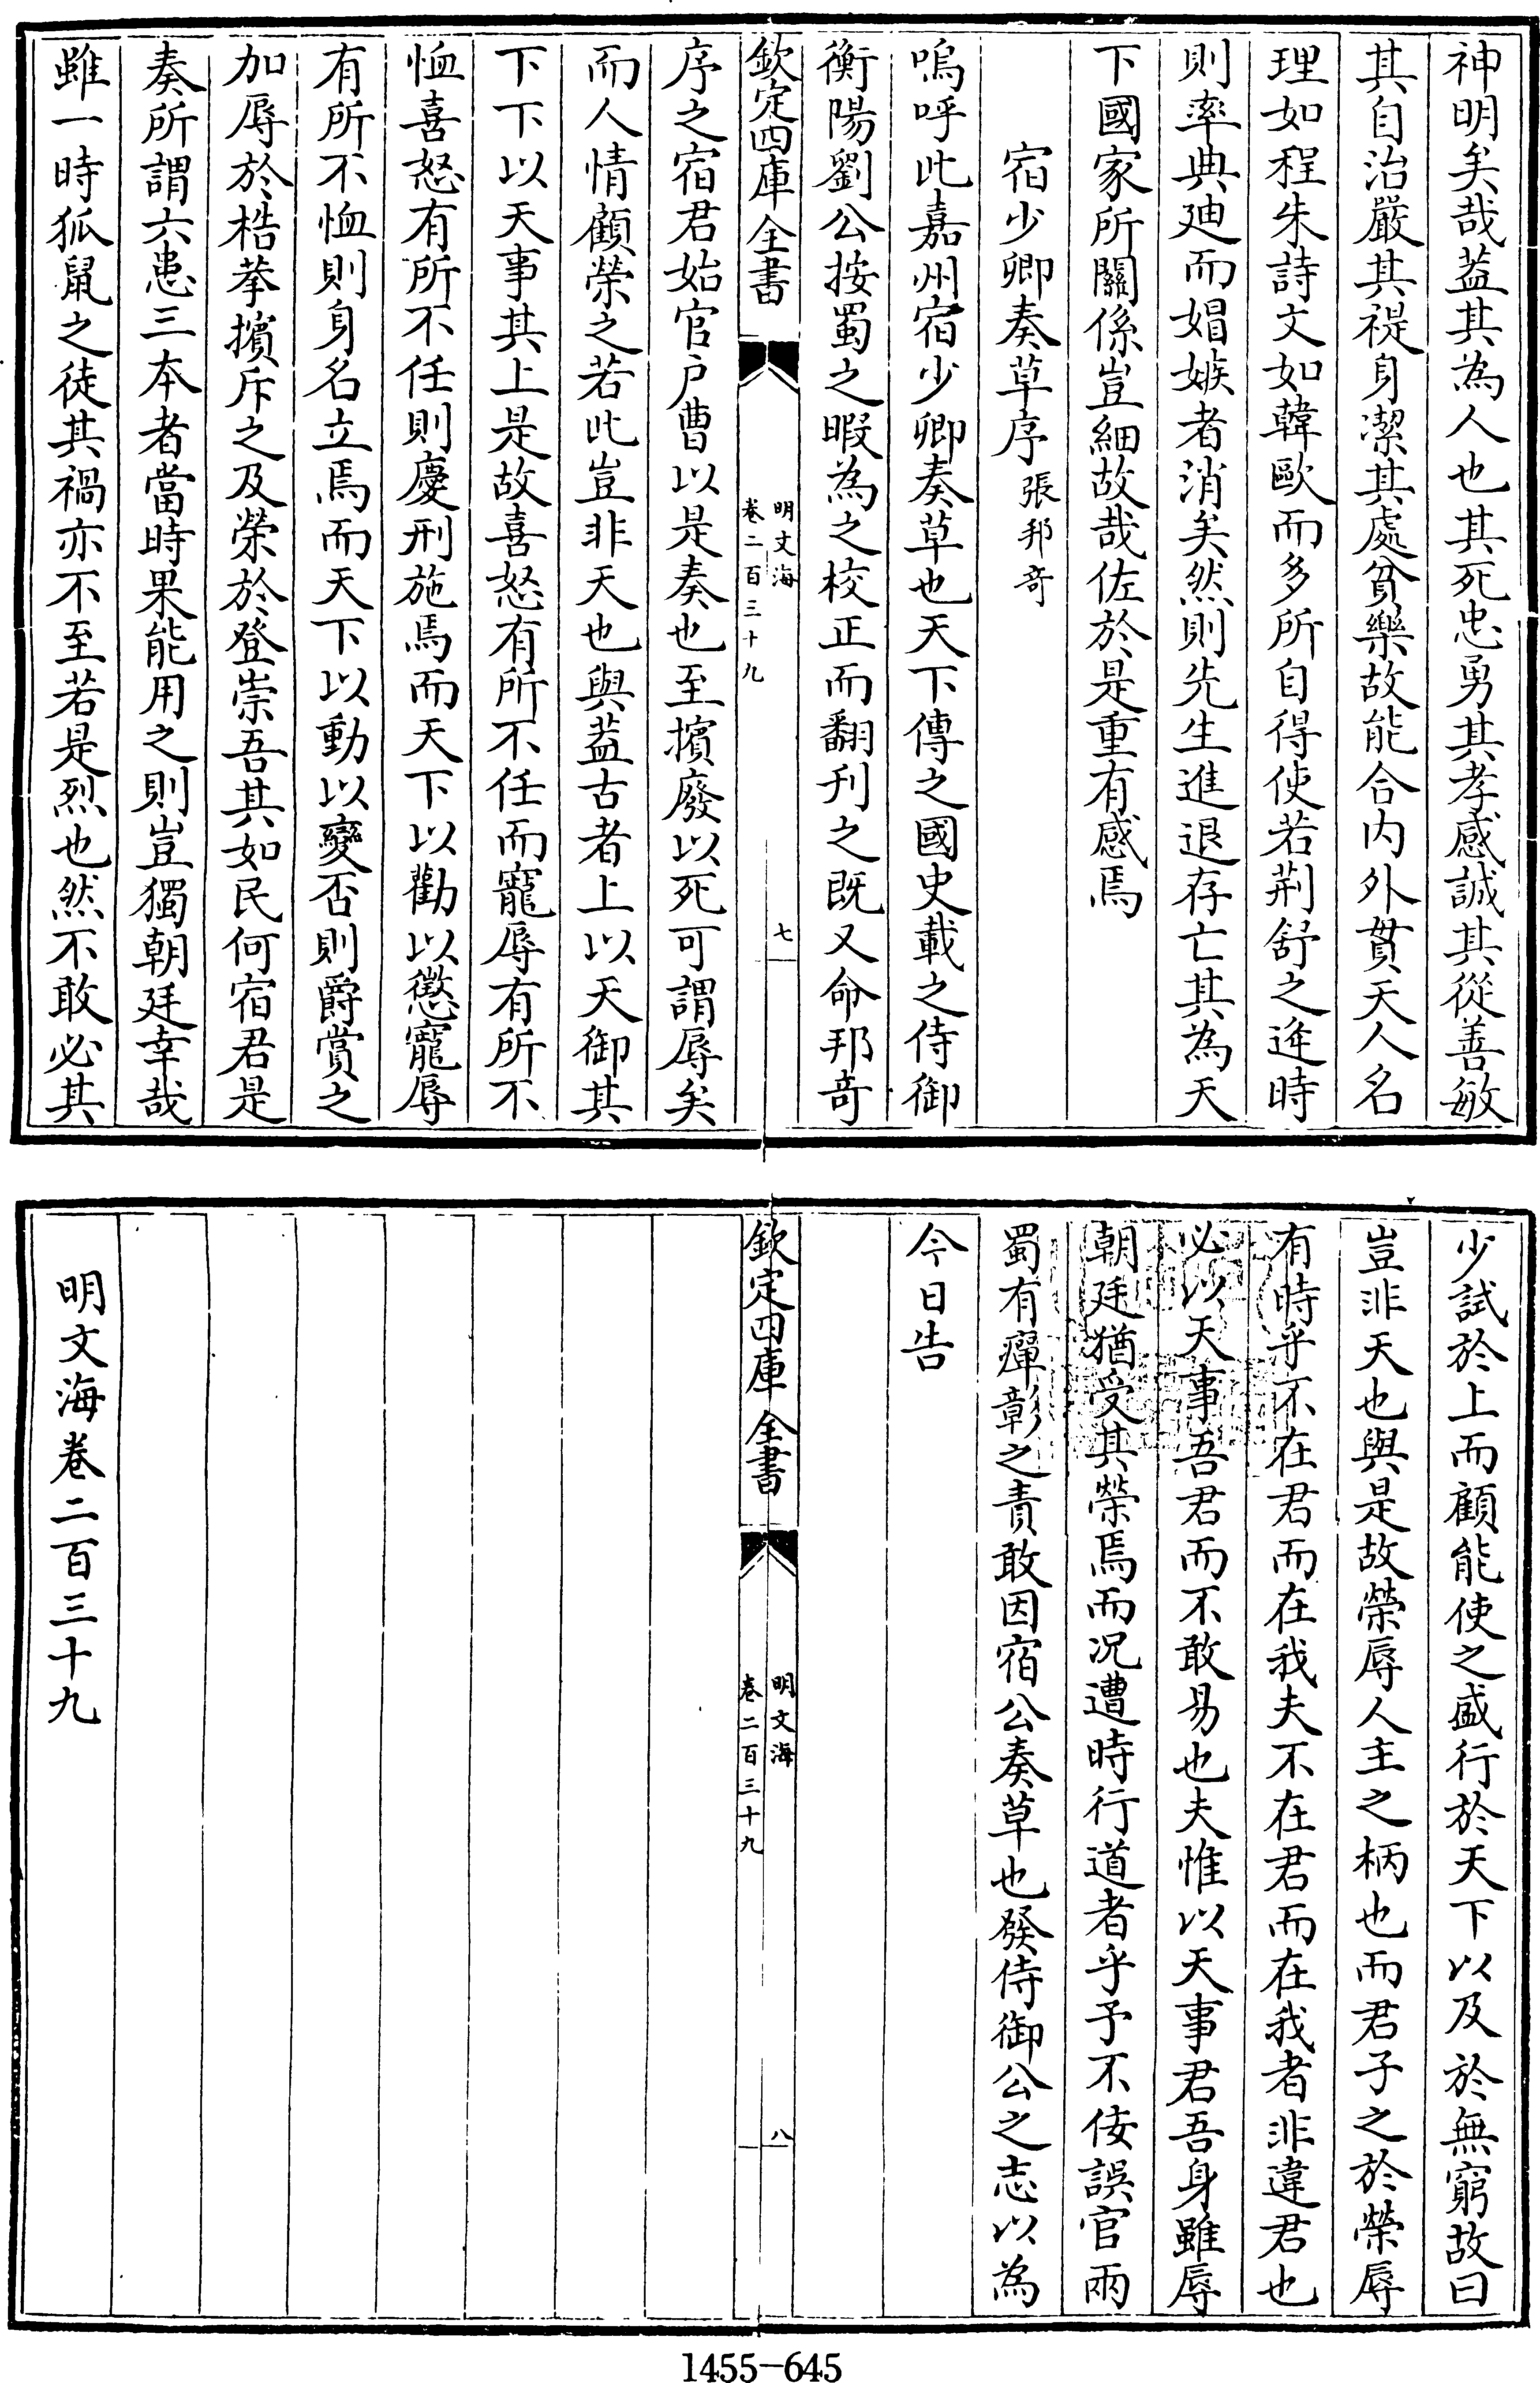 神明矣哉葢其為人也其死忠勇其孝感誠其從善敏
其自治嚴其禔身潔其處貧樂故能合内外貫天人名
理如程朱詩文如韓歐而多所自得使若荆舒之逢時
則率典廸而娼嫉者消矣然則先生進退存亡其為天
下國家所關係豈細故哉佐於是重有感焉
宿少卿奏草序 張邦竒
嗚呼此嘉州宿少卿奏草也天下傳之國史載之侍御
衡陽劉公按蜀之暇為之校正而翻刋之既又命邦竒
欽定四庫全書
明文海
卷二百三十九
七
序之宿君始官户曹以是奏也至擯廢以死可謂辱矣
而人情顧榮之若此豈非天也與葢古者上以天御其
下下以天事其上是故喜怒有所不任而寵辱有所不
恤喜怒有所不任則慶刑施焉而天下以勸以懲寵辱
有所不恤則身名立焉而天下以動以變否則爵賞之
加辱於梏拲擯斥之及榮於登崇吾其如民何宿君是
奏所謂六患三本者當時果能用之則豈獨朝廷幸哉
雖一時狐鼠之徒其禍亦不至若是烈也然不敢必其
少試於上而顧能使之盛行於天下以及於無窮故曰
豈非天也與是故榮辱人主之柄也而君子之於榮辱
有時乎不在君而在我夫不在君而在我者非違君也
必以天事吾君而不敢易也夫惟以天事君吾身雖辱
朝廷猶受其榮焉而况遭時行道者乎予不佞誤官兩
蜀有癉彰之責敢因宿公奏草也發侍御公之志以為
今日告
欽定四庫全書
明文海
卷二百三十九
八
明文海卷二百三十九
1455-645